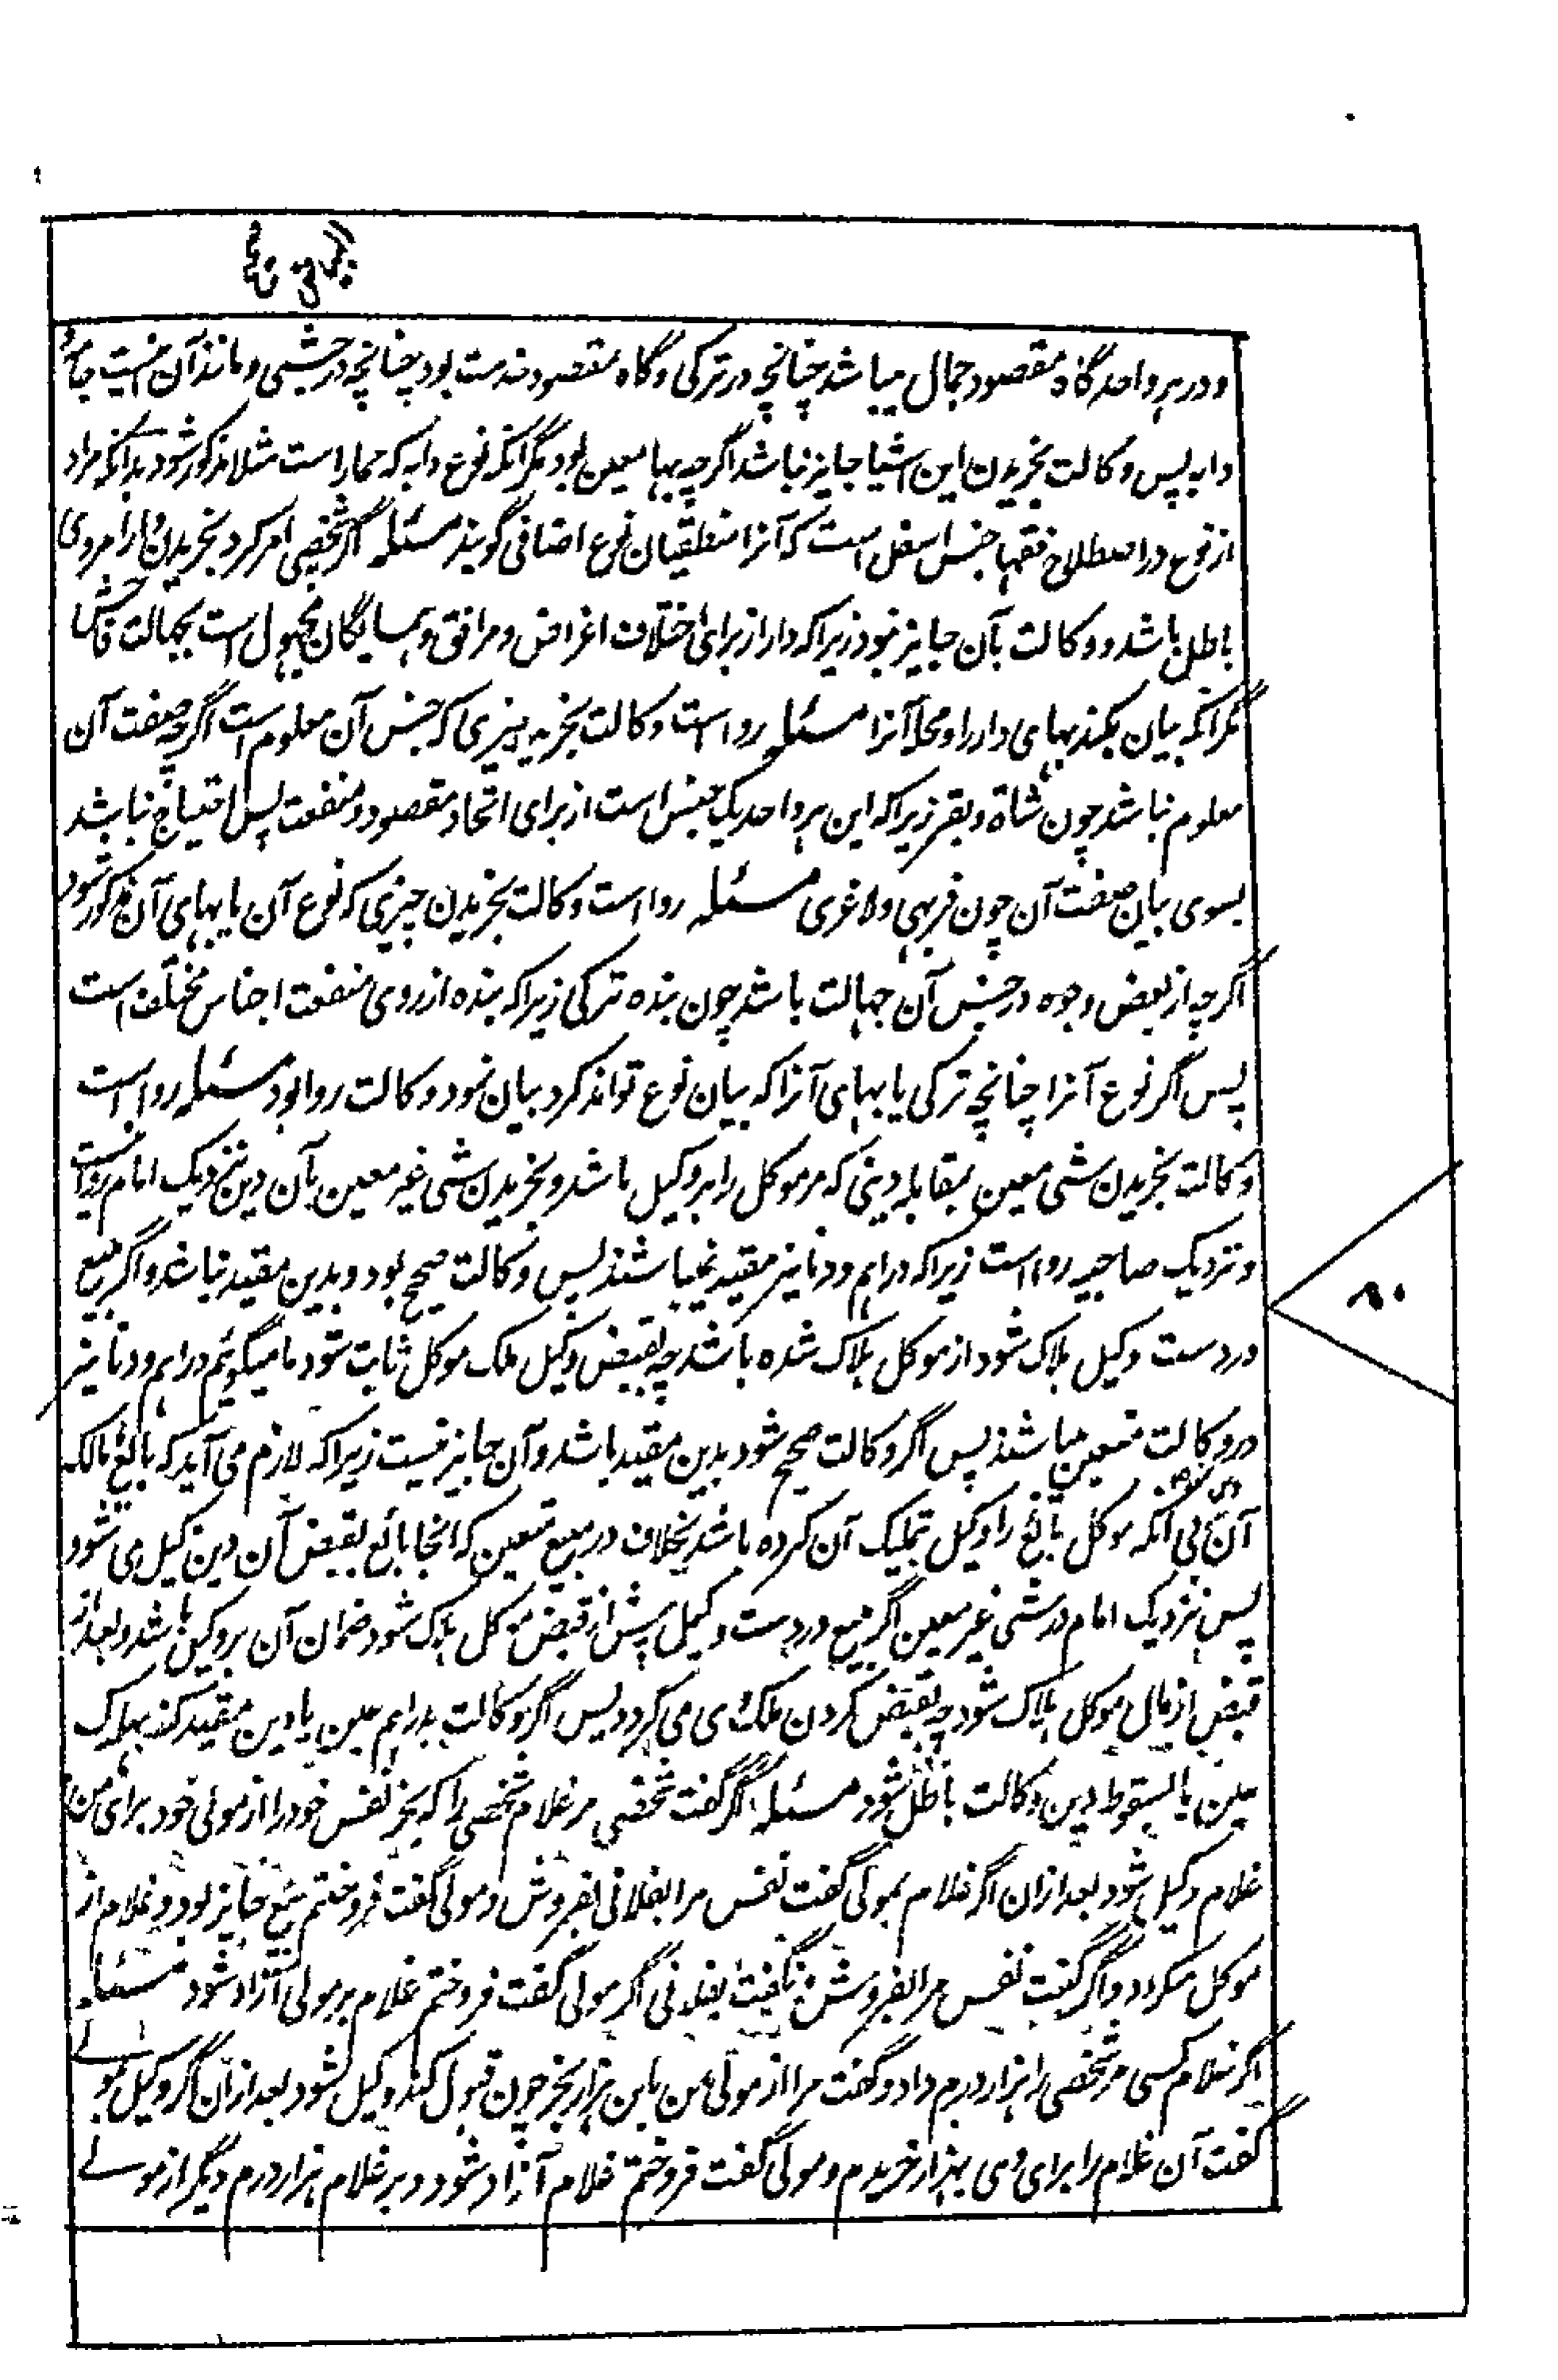 و در هر واحد گاه مقصود جمال میباشد چنانچه در ترکی و گاه مقصود خدمت بود چنانچه در حبشی و مانند آن همیست جامه و
دابه پس وکالت بخریدن این اشیا جایز نباشد اگرچه بها معین بود مگر آنکه نوع دابه که حمار است مثلا مذکور شود بدانکه مراد
از نوع در اصطلاح فقها جنس اسفل است که آنرا منطقیان نوع اضافی گویند مسئله اگر شخصی امر کرد بخریدن دار امر وی
باطل باشد و وکالت بآن جایز نبود زیراکه دار از برای اختلاف اغراض و مرافق و همسایگان مجهول است بجهالت فاحش
مگر آنکه بیان بکند بهای دار را و محله آنرا مسئله روا است وکالت بخرید چیزی که جنس آن معلوم است اگرچه صفت آن
معلوم نباشد چون شاة و بقر زیراکه این هر واحد یک جنس است از برای اتحاد مقصود و منفعت پس احتیاج نباشد
بسوی بیان صفت آن چون فربهی و لاغری مسئله روا است وکالت بخریدن چیزی که نوع آن یا بهای آن مذکور شود
اگرچه از بعض وجوه در جنس آن جهالت باشد چون بنده ترکی زیراکه بنده از روی منفعت اجناس مختلف است
پس اگر نوع آنرا چنانچه ترکی یا بهای آنرا که بیان نوع تواند کرد بیان نمود وکالت روا بود مسئله روا است
وکالت بخریدن شی معین بمقابله دینی که مر موکل را بر وکیل باشد و بخریدن شی غیر معین بآن دین نزدیک امام روا نیست
و نزدیک صاحبیه روا است زیراکه دراهم و دنانیر مقید نمیباشند پس وکالت صحیح بود و بدین مقید نباشد و اگر مبیع
در دست وکیل هلاک شود از موکل هلاک شده باشد چه بقبض وکیل ملک موکل ثابت شود ما میگوئیم دراهم و دنانیر
در وکالت متعین میباشند پس اگر وکالت صحیح شود بدین مقید باشد و آن جایز نیست زیراکه لازم می آید که بائع مالک
آن بی آنکه موکل بائع را وکیل تملیک آن کرده باشد بخلاف در مبیع متعین که آنجا بائع بقبض آن دین وکیل می شود
پس نزدیک امام در شی غیر معین اگر مبیع در دست وکیل پیش از قبض موکل هلاک شود ضمان آن بر وکیل باشد و بعد از
قبض از مال موکل هلاک شود چه بقبض کردن ملک وی می گردد پس اگر وکالت بدراهم عین یا دین مقید کند بهلاک
عین یا بسقوط دین وکالت باطل شود مسئله اگر گفت شخصی مر غلام شخصی را که بخر نفس خود را از مولی خود برای من
غلام وکیل شود بعد از ان اگر غلام بمولی گفت نفس مرا بفلانی بفروش و مولی گفت فروختم بیع جایز بود و غلام از
موکل میگردد و اگر گفت نفس مرا بفروش و نگفت بفلانی اگر مولی گفت فروختم غلام بر مولی آزاد شود مسئله
اگر غلام کسی مر شخصی را هزار درم داد و گفت مرا از مولی من باین هزار بخر چون قبول کند وکیل شود بعد از ان اگر وکیل بمولی
گفت آن غلام را برای وی بهزار خریدم و مولی گفت فروختم غلام آزاد شود و بر غلام هزار درم دیگر از مولی